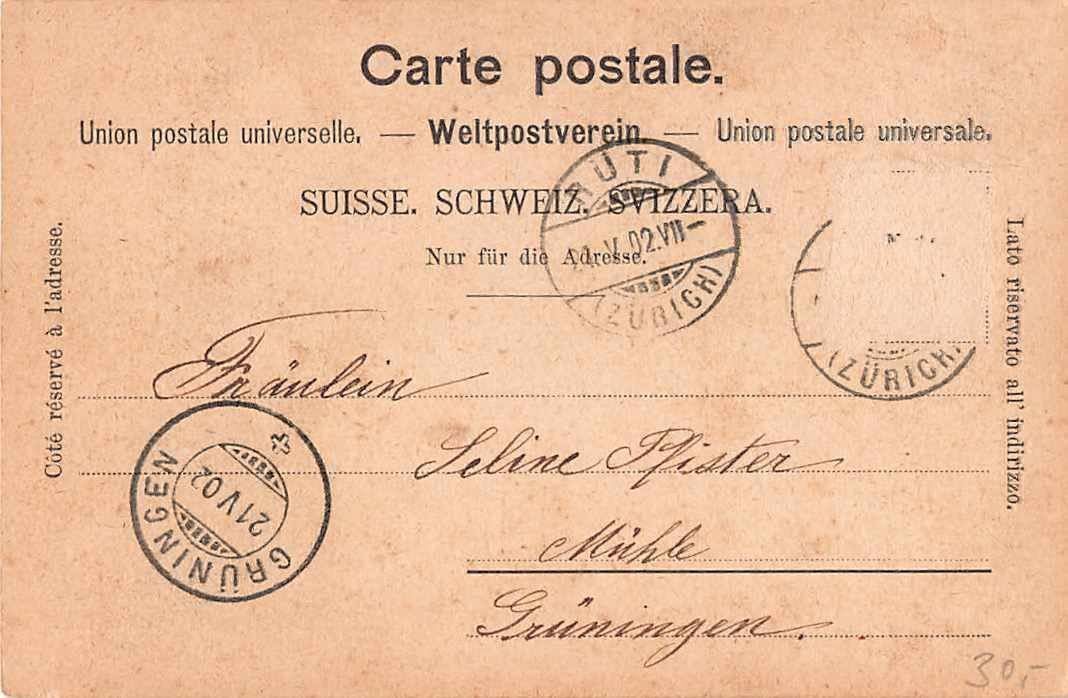 Carte postale.
Union postale universelle. — Weltpostverein. — Union postale universale.
SUISSE. SCHWEIZ. SVIZZERA.
Nur für die Adresse.
Coté réservé à l'adresse.
Lato riservato all' indirizzo.
RÜTI
V.02.VII–
(ZÜRICH)
(ZÜRICH)
Fräulein
Seline Pfister
Mühle
Grüningen.
GRÜNINGEN
21 V 02
30,-